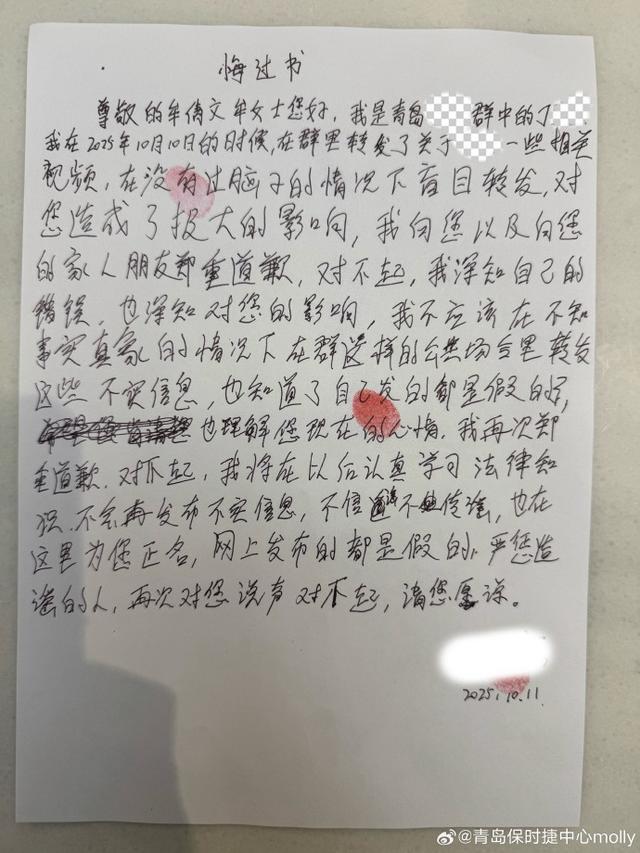 悔过书
尊敬的牟倩文 牟女士您好，我是青岛 群中的丁
我在2025年10月10日的时候，在群里转发了关于 一些相关
视频，在没有过脑子的情况下盲目转发，对
您造成了极大的影响，我向您以及向您
的家人朋友郑重道歉，对不起，我深知自己的
错误，也深知对您的影响，我不应该在不知
事实真象的情况下在群这样的公共场合里转发
这些不实信息，也知道了自己发的都是假的，
也理解您现在的心情，我再次郑
重道歉，对不起，我将在以后认真学习法律知
识，不会再发布不实信息，不信谣不传谣，也在
这里为您正名，网上发布的都是假的，严惩造
谣的人，再次对您说声对不起，请您原谅。
2025.10.11
@青岛保时捷中心molly